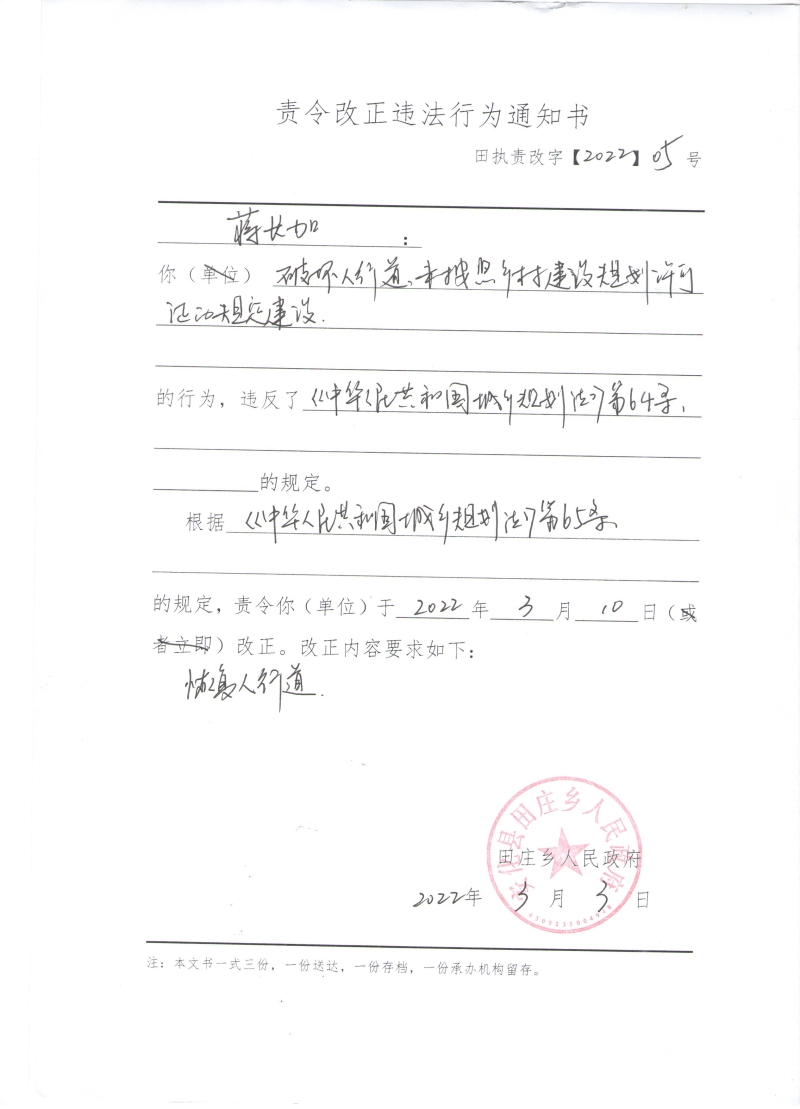 责令改正违法行为通知书
田执责改字【2022】05号
蒋长加：
你（单位）破坏人行道、未按照乡村建设规划许可
证的规定建设.
的行为，违反了《中华人民共和国城乡规划法》第64条、
的规定。
根据《中华人民共和国城乡规划法》第65条
的规定，责令你（单位）于2022年3月10日（或
者立即）改正。改正内容要求如下：
恢复人行道.
安化县田庄乡人民政府
田庄乡人民政府
2022年3月3日
注：本文书一式三份，一份送达，一份存档，一份承办机构留存。